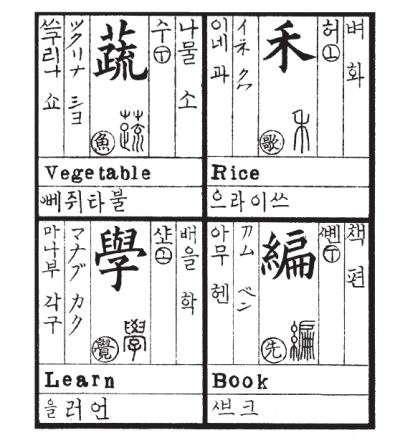 나물 소
수 下
蔬
魚 蔬
ツクリナ ショ
쓰구리나 쇼
Vegetable
뻬쥐타불
벼 화
허 上
禾
歌 禾
イネ
이네 과
Rice
으라이쓰
배을 학
學
覺 學
マナブ カク
마나부 각구
Learn
을러언
책 편
編
先 編
아무 헨
Book